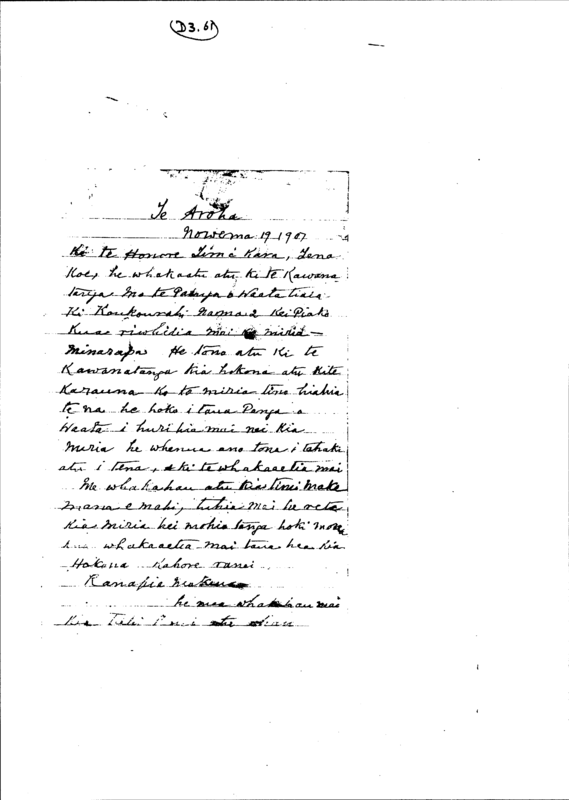 D3.61
Te Aroha
Nowema 19 1907
Ki te Honore Timi Kara, Tena
Koe, he whakaatu atu ki te Kawana
tanga Mo te Panga o Waata
Ki Koukourahi Nama 2 Kei Piako
Kua mai ki Miria
Minarapa He tono atu Ki te
Kawanatanga Kia hokona atu Kite
Karauna Ko to Miria tino hiahia
te na he hoko i taua Panga a
Waata i huri hia mai nei Kia
Miria he whenua ano tona i tahaki
atu i tena, ki te whakaaetia mai
Me whakahau atu Kia Timi Make
mana e mahi, tuhia mai he reta
Kia Miria hei mohio tanga hoki mona
whakaaetia mai taua hea Kia
Hokona Kahore ranei
Kanapia
he mea whakahau mai
Kia atu ahau